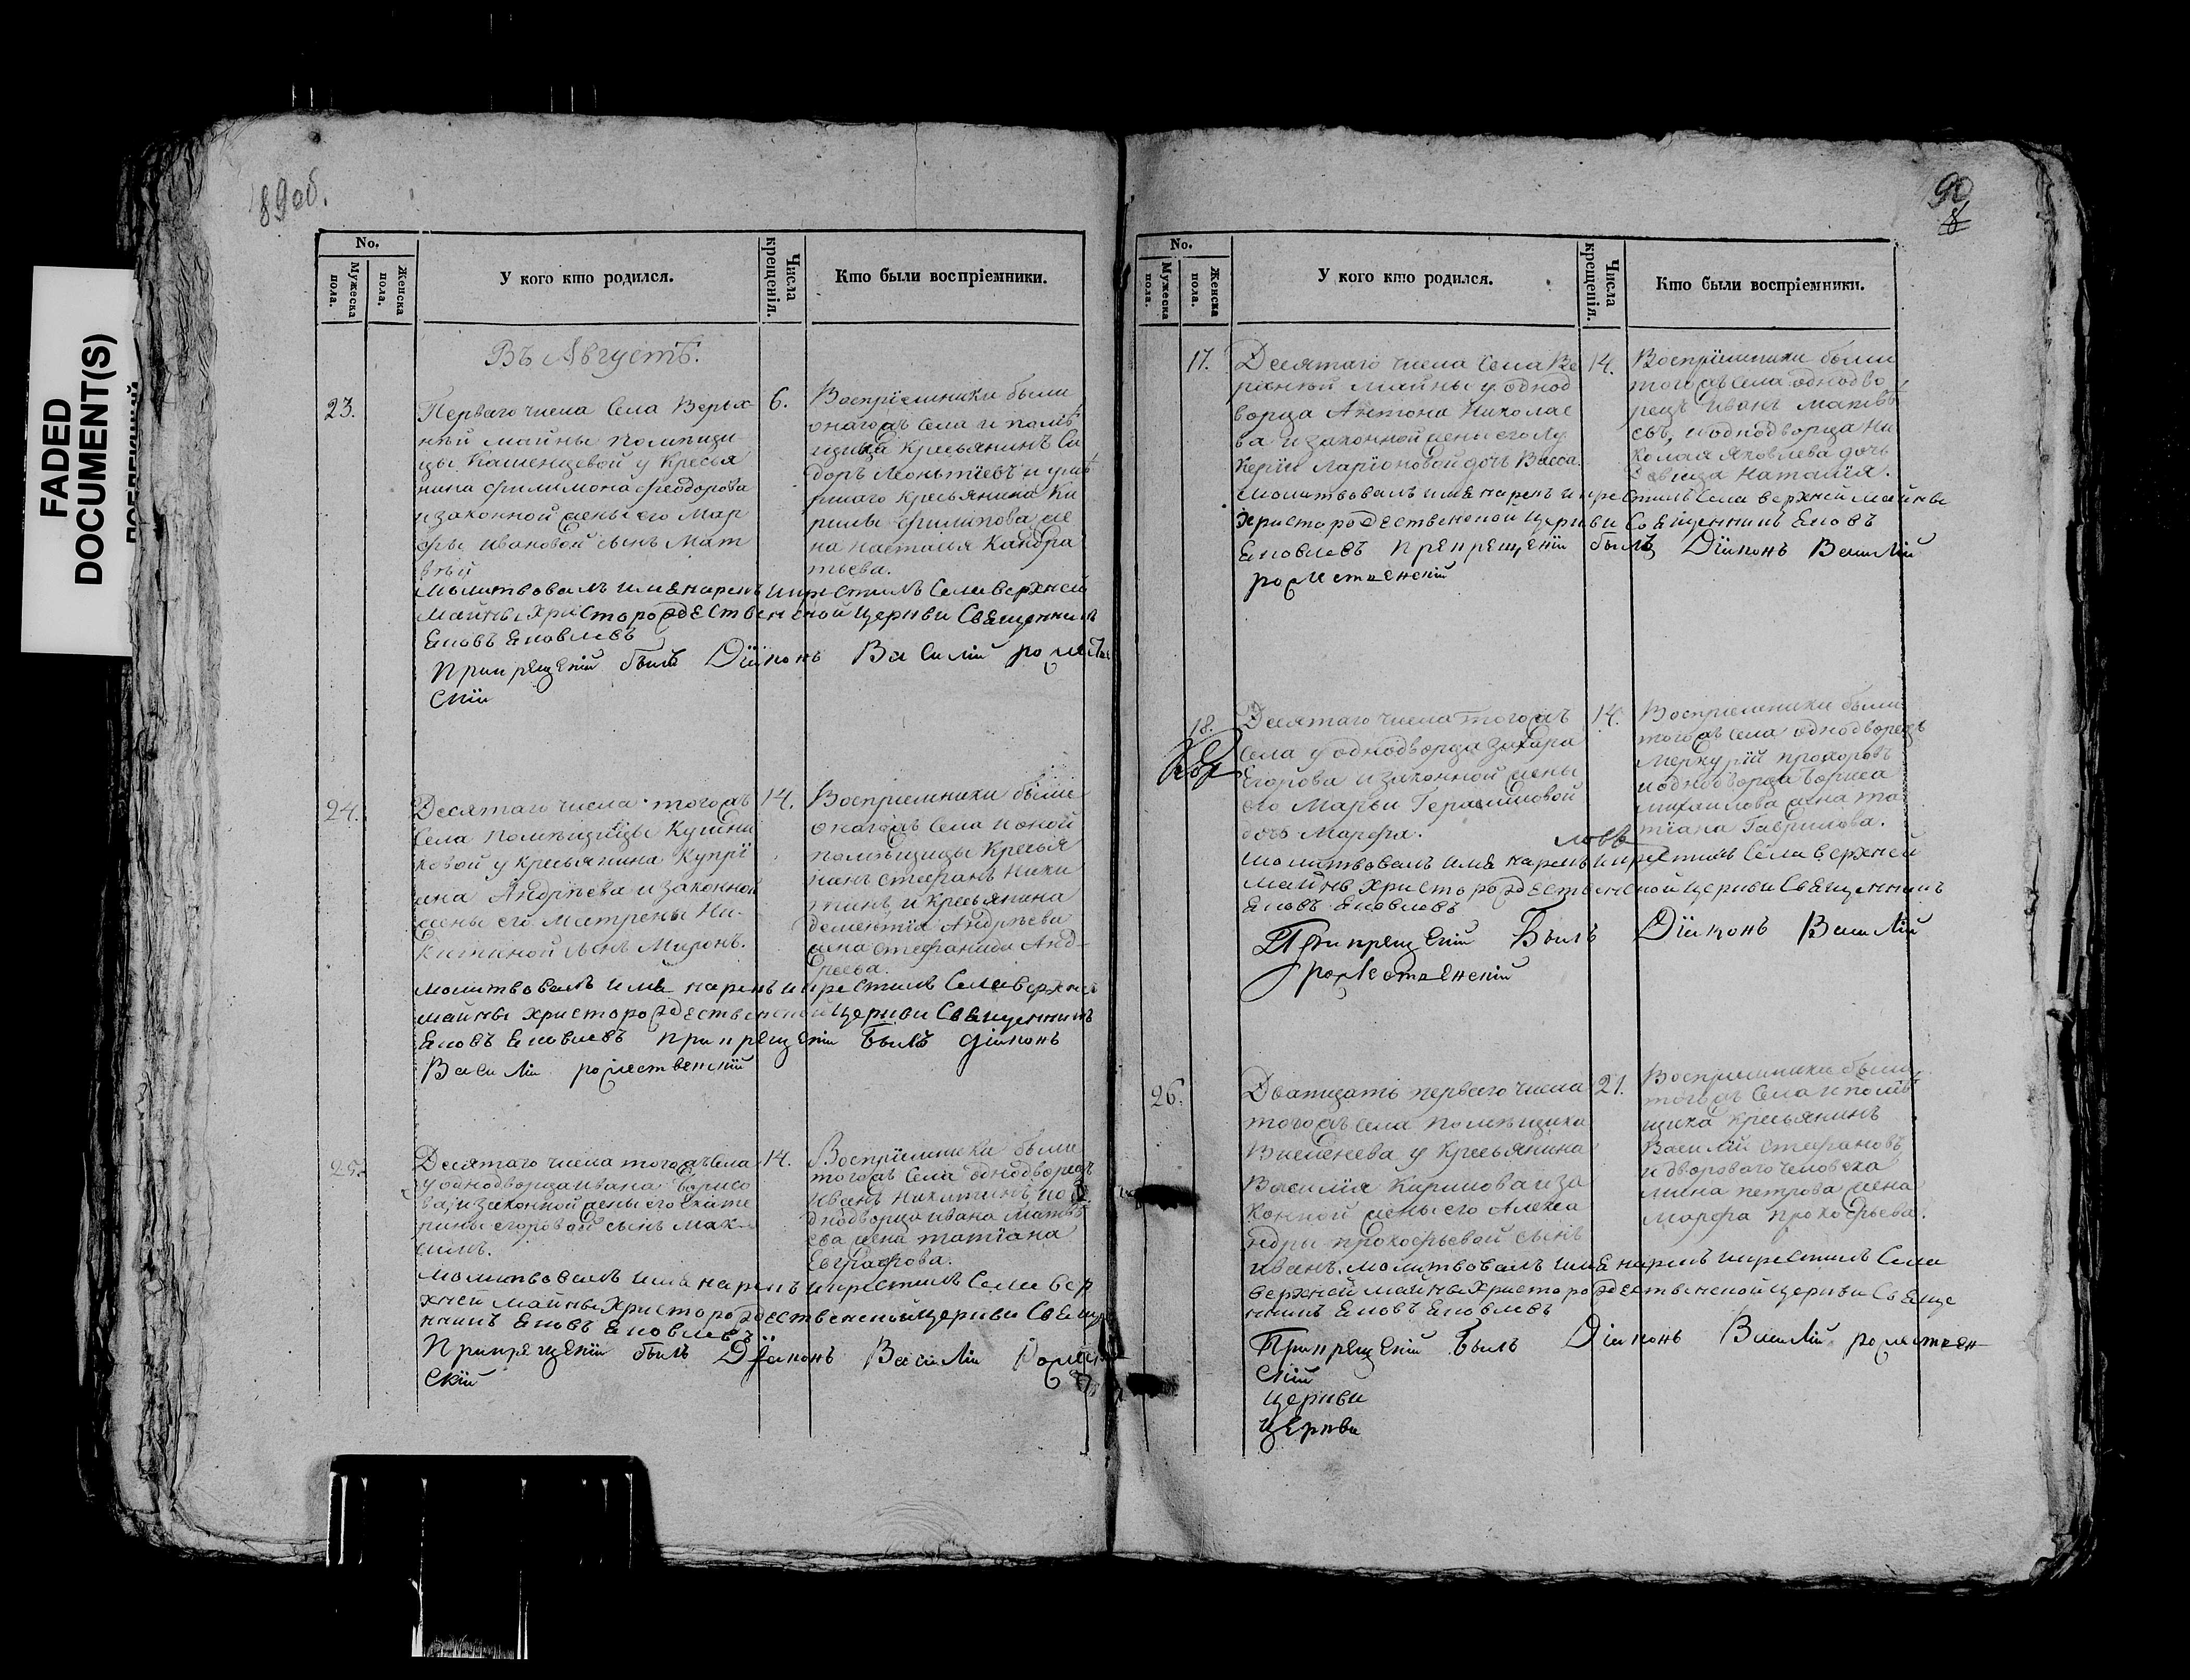 FADED
DOCUMENT(S)
89об.
No.
Мужеска пола.
Женска пола.
У кого кто родился.
Числа крещенія.
Кто были воспріемники.
Въ Августѣ.
23.
Перваго числа Села Верьх-
нѣй майны помѣщи
цы Кашенцевой у Кресья
нина Филимона Феодорова
и законной жены его Мар
фы Ивановой сынъ Мат
вѣй
6.
Воспріемники были
онагожъ Села и помѣ
щика Кресьянинъ Си
доръ Леоньтіевъ и
Кресьянина Ки
рилы Филипова же
на Наталья Кандра
тьева.
молитвовалъ имя нарекъ и крестилъ Села верхней
майны христорождественской церкви Священникъ
Ековъ Ековлевъ
при крещеніи былъ Діяконъ Василій рожеств
скій
24.
Десятаго числа тогожъ
Села помѣщицы
ковой у кресьянина Купрі
яна Андрѣева и законной
жены его Матрены Ни-
китиной сынъ Миронъ.
14.
Воспріемники были
онагожъ Села и оной
помѣщицы Кресья
нинъ Стефанъ Ники
тинъ и кресьянина
дементія Андрѣева
жена Стефанида Анд-
реева.
молитвовалъ имя нарекъ и крестилъ Села верхней
майны христорождественской церкви Священникъ
Ековъ Ековлевъ при крещеніи былъ діяконъ
Василій рожественскій
25.
Десятаго числа тогожъ Села
у однодворца Ивана Борисо
ва и законной жены его Екате
рины Егоровой сынъ Мак-
симъ.
14.
Воспріемники были
тогожъ Села однодворецъ
Иванъ Никитинъ, и о
днодворца Ивана Матвѣ
ева жена татіана
Евграфова.
молитвовалъ имя нарекъ и крестилъ Села вер
хней майны Христорождественской церкви Свяще
нникъ Ековъ Ековлевъ
При крещеніи былъ Діяконъ Василій
скій
90
8
No.
Мужеска пола.
Женска пола.
У кого кто родился.
Числа крещенія.
Кто были воспріемники.
17.
Десятаго числа Села Ве
рхней майны у однод
ворца Антона Николае
ва и законной жены его Лу
керіи Ларіоновой дочь Васса.
14.
Воспріемники были
тогожъ села однодво
рецъ Иванъ Матвѣ
евъ, и однодворца Ни
колая Яковлева дочь
девица Наталія.
молитвовалъ имя нарекъ и крестилъ Села верхней майны
христорождественской церкви Священникъ Ековъ
Ековлевъ при крещеніи былъ Діяконъ Василій
рожественскій
18.
Десятаго числа тогожъ
Села у однодворца Захара
Егорова и законной жены
его Марьи Герасимовой
дочь Марфа.
14.
Воспріемники были
тогожъ села однодворецъ
Меркурій прохоровъ
и однодворца Бориса
михайлова жена та
тіана Гаврилова.
молитвовалъ имя нарекъ и крестилъ Села верхней
майны христорождественской церкви Священникъ
Ековъ Ековлевъ
При крещеніи Былъ Діяконъ Василій
рожественскій
26.
Дватцать перваго числа
тогожъ села помѣщика
у Кресьянина
Василія Кирилова и за
конной жены его Алекса
ндры прокофьевой сынъ
Иванъ.
21.
Воспріемники были
тогожъ Села и помѣ
щика Кресьянинъ
Василій Стефановъ
и дворового человека
петрова жена
Марфа прокофьева.
молитвовалъ имя нарекъ и крестилъ Села
верхней майны Христорождественской церкви Свяще
нникъ Ековъ Ековлевъ
При крещеніи Былъ Діяконъ Василій рожествен
скій
церкви
церкви